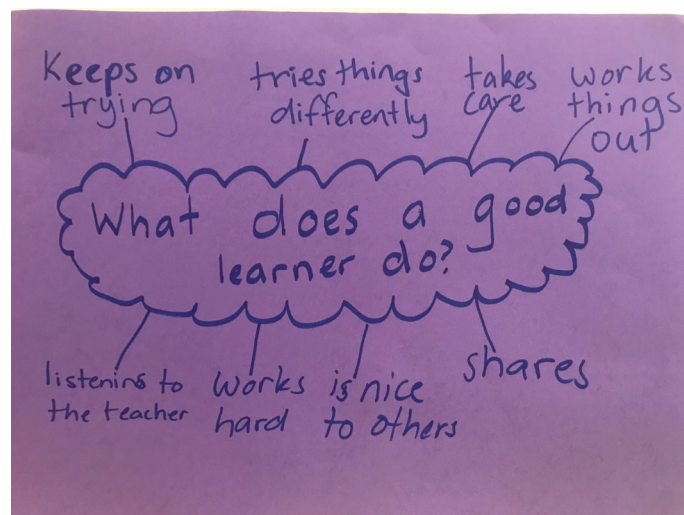 Keeps on
trying
tries things
differently
takes
care
works
things
out
What does a good
learner do?
listening to
the teacher
works
hard
is nice
to others
shares